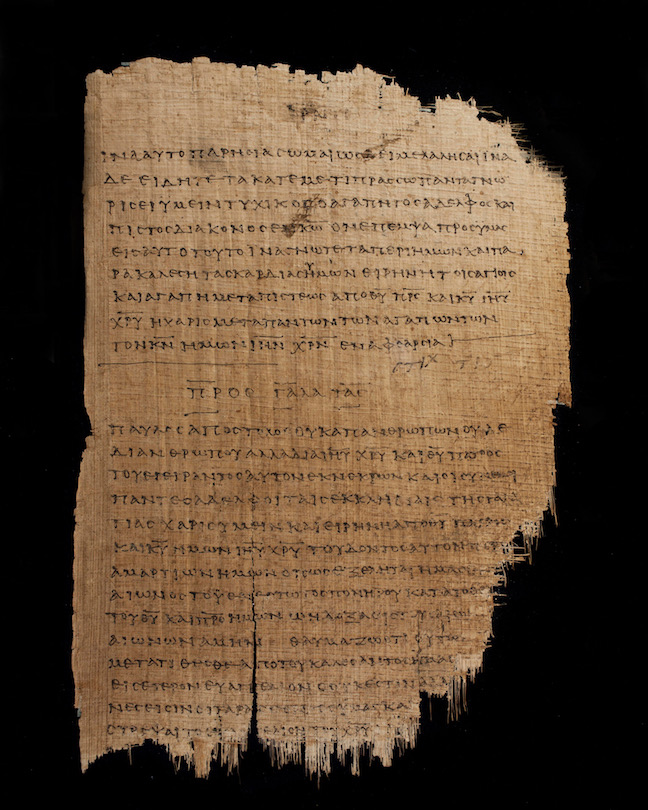 ΙΝΑ ΑΥΤΟ ΠΑΡΗϹΙΑϹΩΜΑΙ ΩϹ ΔΕΙ ΜΕ ΛΑΛΗϹΑΙ ΙΝΑ
ΔΕ ΕΙΔΗΤΕ ΤΑ ΚΑΤ ΕΜΕ ΤΙ ΠΡΑϹϹΩ ΠΑΝΤΑ ΓΝΩ
ΡΙϹΕΙ ΥΜΕΙΝ ΤΥΧΙΚΟϹ Ο ΑΓΑΠΗΤΟϹ ΑΔΕΛΦΟϹ ΚΑΙ
ΠΙϹΤΟϹ ΔΙΑΚΟΝΟϹ ΕΝ ΚΩ ΟΝ ΕΠΕΜΨΑ ΠΡΟϹ ΥΜΑϹ
ΕΙϹ ΑΥΤΟ ΤΟΥΤΟ ΙΝΑ ΓΝΩΤΕ ΤΑ ΠΕΡΙ ΗΜΩΝ ΚΑΙ ΠΑ
ΡΑΚΑΛΕϹΗ ΤΑϹ ΚΑΡΔΙΑϹ ΥΜΩΝ ΕΙΡΗΝΗ ΤΟΙϹ ΑΓΙΟΙϹ
ΚΑΙ ΑΓΑΠΗ ΜΕΤΑ ΠΙϹΤΕΩϹ ΑΠΟ ΘΥ ΠΡϹ ΚΑΙ ΚΥ ΙΗΥ
ΧΡΥ Η ΧΑΡΙϹ ΜΕΤΑ ΠΑΝΤΩΝ ΤΩΝ ΑΓΑΠΩΝΤΩΝ
ΤΟΝ ΚΝ ΗΜΩΝ ΙΗΝ ΧΡΝ ΕΝ ΑΦΘΑΡϹΙΑ
ϹΤΙΧ
ΠΡΟϹ ΓΑΛΑΤΑϹ
ΠΑΥΛΟϹ ΑΠΟϹΤΟΛΟϹ ΟΥΚ ΑΠ ΑΝΘΡΩΠΩΝ ΟΥΔΕ
ΔΙ ΑΝΘΡΩΠΟΥ ΑΛΛΑ ΔΙΑ ΙΗΥ ΧΡΥ ΚΑΙ ΘΥ ΠΑΤΡΟϹ
ΤΟΥ ΕΓΕΙΡΑΝΤΟϹ ΑΥΤΟΝ ΕΚ ΝΕΚΡΩΝ ΚΑΙ ΟΙ ϹΥΝ ΕΜΟΙ
ΠΑΝΤΕϹ ΑΔΕΛΦΟΙ ΤΑΙϹ ΕΚΚΛΗϹΙΑΙϹ ΤΗϹ ΓΑΛΑ
ΤΙΑϹ ΧΑΡΙϹ ΥΜΕΙΝ ΚΑΙ ΕΙΡΗΝΗ ΑΠΟ ΘΥ
ΚΑΙ ΚΥ ΗΜΩΝ ΙΗΥ ΧΡΥ ΤΟΥ ΔΟΝΤΟϹ ΑΥΤΟΝ ΠΕΡΙ
ΑΜΑΡΤΙΩΝ ΗΜΩΝ ΟΠΩϹ ΕΞΕΛΗΤΑΙ ΗΜΑϹ
ΑΙΩΝΟϹ ΤΟΥ ΕΝΕϹΤΩΤΟϹ ΠΟΝΗΡΟΥ ΚΑΤΑ ΤΟ
ΤΟΥ ΘΥ ΚΑΙ ΠΡϹ ΗΜΩΝ Ω Η ΔΟΞΑ ΕΙϹ
ΑΙΩΝΩΝ ΑΜΗΝ ΘΑΥΜΑΖΩ ΟΤΙ ΟΥΤΩϹ
ΜΕΤΑΤΙΘΕϹΘΕ ΑΠΟ ΤΟΥ ΚΑΛΕϹΑΝΤΟϹ ΥΜΑϹ
ΕΙϹ ΕΤΕΡΟΝ ΕΥΑΓΓΕΛΙΟΝ Ο ΟΥΚ ΕϹΤΙΝ
ΝΕϹ ΕΙϹΙΝ ΟΙ ΤΑΡΑϹϹΟΝΤΕϹ ΥΜΑϹ ΚΑΙ